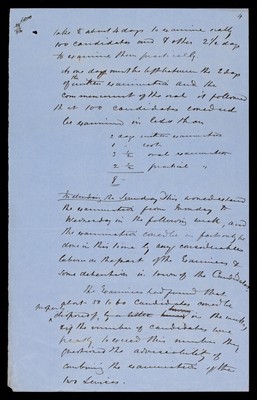 4
take 3 about 4 days to examine orally
100 candidates and 2 other 2 1/2 days
to examine them practically.
As one day must be left between the 2 days
of the written examination and the
commencement of the oral it followed
that 100 candidates could not
be examined in less than
2 days written examination
1 " rest
3 1/2 oral examination
2 1/2 practical "
9
Sunday This would extend
the examination from Monday to
Wednesday in the following week, and
the examination could be in
done in this time by very considerable
labour on the part of the Examiners &
some detention in town of the Candidates.
The Examiners had found that
about 50 to 60 candidates could be
properly
disposed of in the week,
if the number of candidates were
greatly to exceed this number they
questioned the advisability of
combining the examinations of the
two Services.